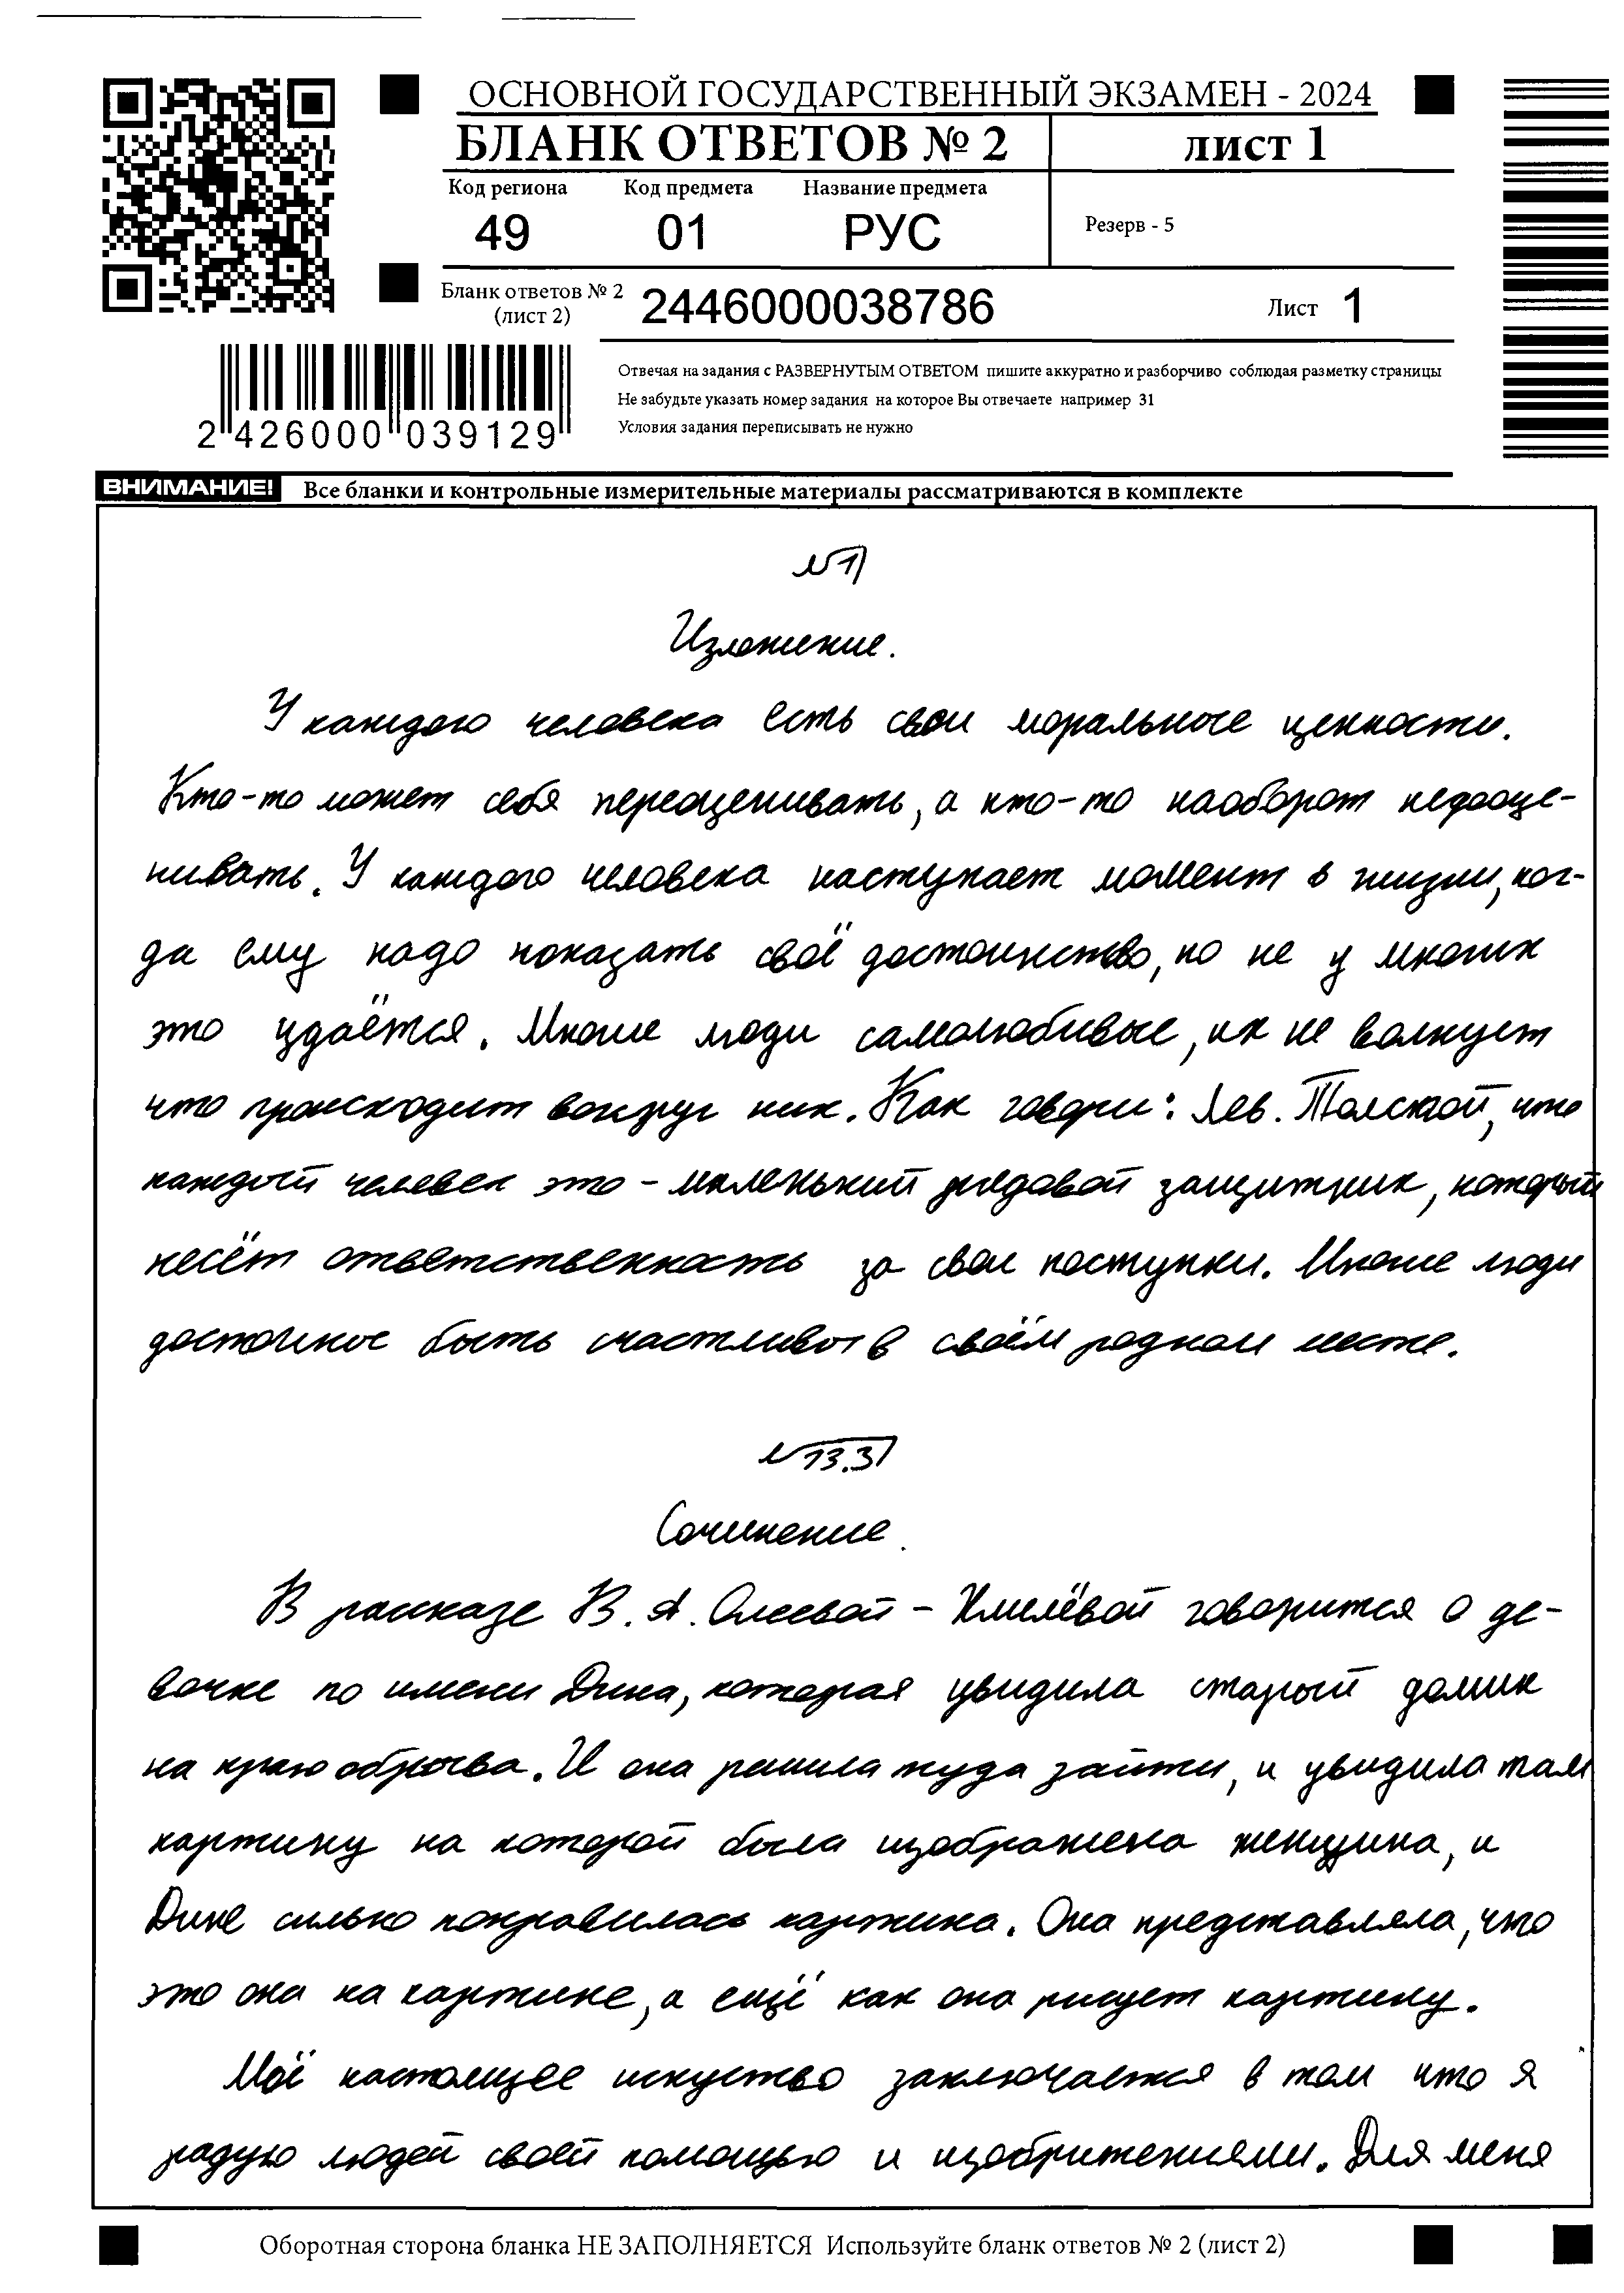 ОСНОВНОЙ ГОСУДАРСТВЕННЫЙ ЭКЗАМЕН - 2024
БЛАНК ОТВЕТОВ № 2
лист 1
Код региона Код предмета Название предмета
49 01 РУС
Резерв - 5
Бланк ответов № 2
(лист 2)
2446000038786
Лист 1
2 426000 039129
Отвечая на задания с РАЗВЕРНУТЫМ ОТВЕТОМ пишите аккуратно и разборчиво соблюдая разметку страницы
Не забудьте указать номер задания на которое Вы отвечаете например 31
Условия задания переписывать не нужно
ВНИМАНИЕ! Все бланки и контрольные измерительные материалы рассматриваются в комплекте
№1
Изложение.
У каждого человека есть свои моральные ценности.
Кто-то может себя переоценивать, а кто-то наоборот недооце-
нивать. У каждого человека наступает момент в жизни, ког-
да ему надо показать своё достоинство, но не у многих
это удаётся. Многие люди самолюбивые, их не волнует
что происходит вокруг них. Как говори: Лев. Толстой, что
каждый человек это - маленький рядовой защитник, который
несёт ответственность за свои поступки. Многие люди
достойное быть счастливы в своём родном месте.
№13.3
Сочинение.
В рассказе В. А. Олеевой - Хмелёвой говорится о де-
вочке по имени Дина, которая увидила старый домик
на краю обрыва. И она решила туда зайти, и увидила там
картину на которой была изображена женщина, и
Дине сильно понравилась картина. Она представляла, что
это она на картине, а ещё как она рисует картину.
Моё настоящее искуство заключается в том что я
радую людей своей помощью и изобритениями. Для меня
Оборотная сторона бланка НЕ ЗАПОЛНЯЕТСЯ Используйте бланк ответов № 2 (лист 2)